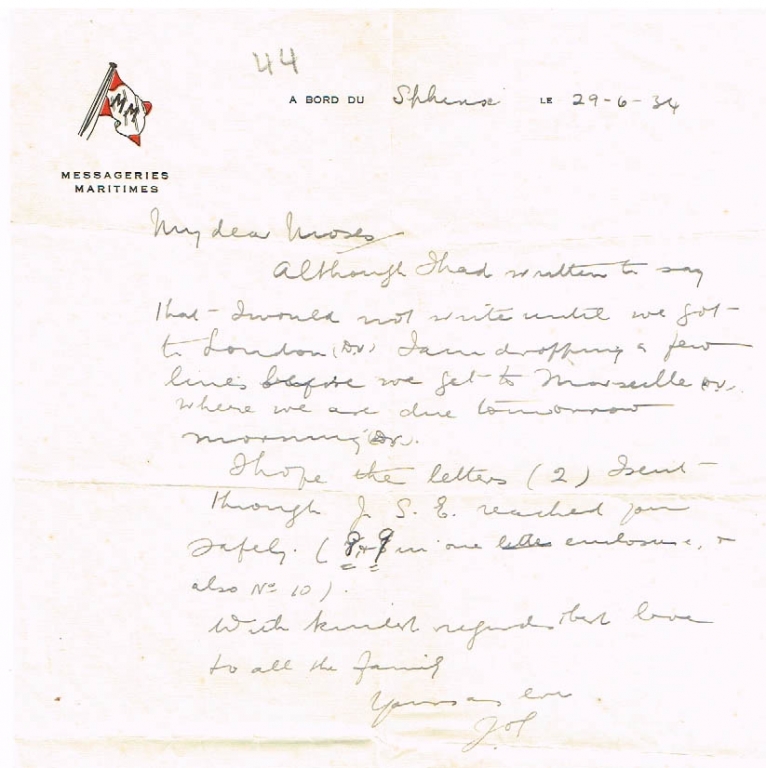 44
A BORD DU Sphinx LE 29-6-34
MM
MESSAGERIES
MARITIMES
My dear Moses
Although I had written to say
that I would not write until we got
to London (DV) I am dropping a few
lines before we get to Marseille DV.
where we are due tomorrow
morning DV.
I hope the letters (2) I sent
through J. S. E. reached you
safely. (8 & 9 in one enclosure, &
also No 10).
With kindest regards best love
to all the family
Yours as ever